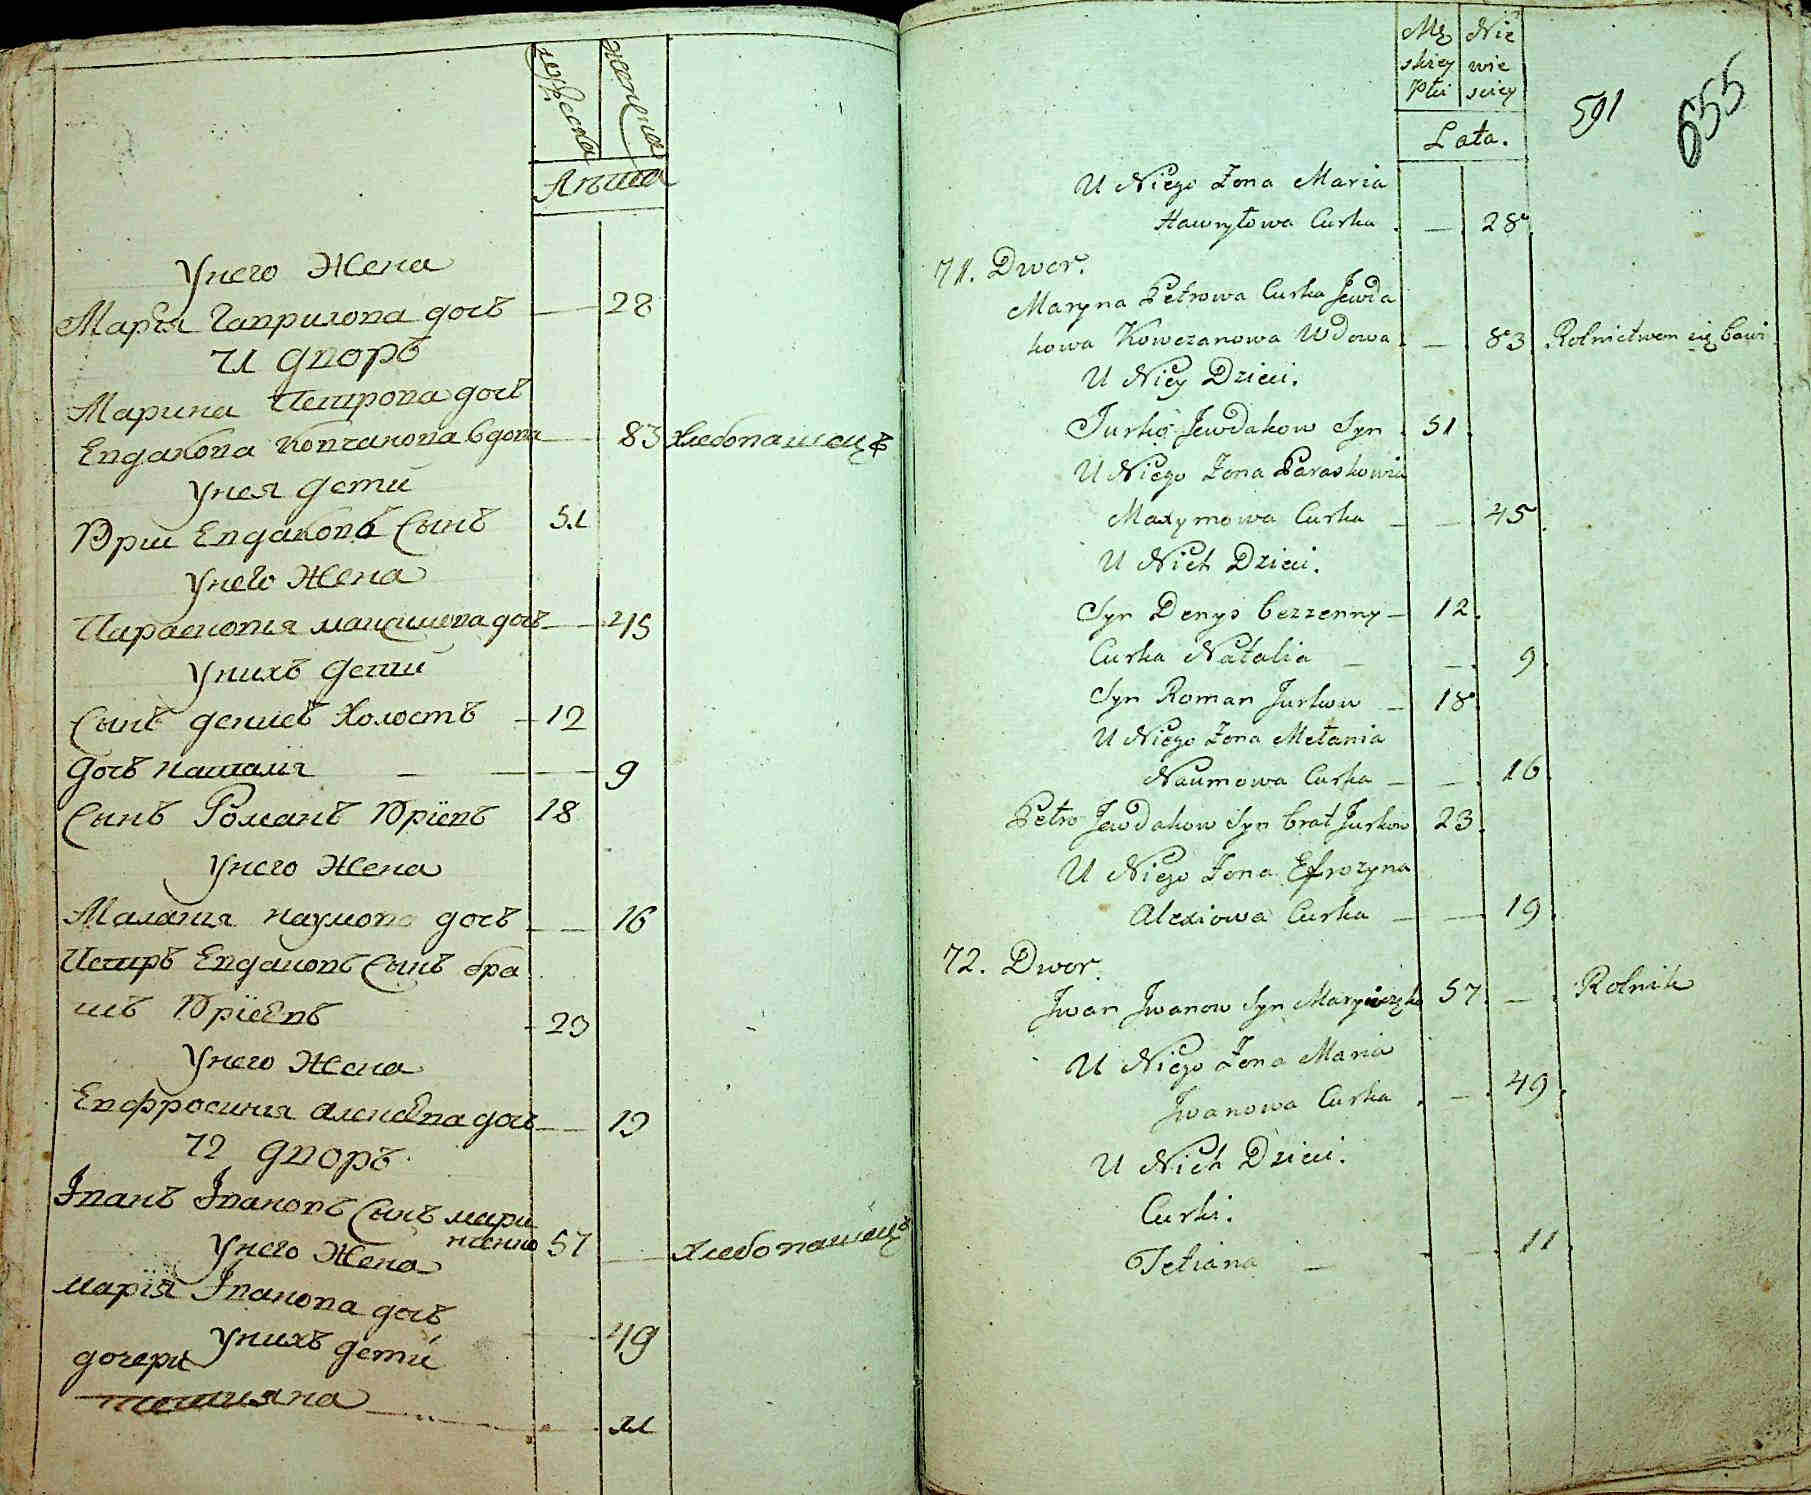 мужеска
женска
Лѣта
Унего Жена
Марія Гаврилова дочъ — 28
71 дворъ
Марина Петрова дочъ
Евдакова Ковчанова вдова — 83 хлебопашецъ
Унея дети
Юрш Евдаковъ Сынъ 51
Унего Жена
Параскотія максимова дочъ — 45
Унихъ дети
Сынъ денисъ холостъ — 12
дочъ наталія — — 9
Сынъ Романъ Юріевъ 18
Унего Жена
Маланія наумова дочъ — 16
Петръ Евдаковъ Сынъ бра
тъ Юріевъ - 23
Унего Жена
Евфросинія алексѣева дочъ — 19
72 дворъ
Іванъ Івановъ Сынъ мари
ненко 57 — хлебопашецъ
Унего Жена
марія Іванова дочъ
49
Унихъ дети
дочери
тетияна — 11
Mę Nie
skiey wie
Płci sciey
Lata.
591 655
U Niego Żona Maria
Hawryłowa Curka . — 28
71. Dwor.
Maryna Petrowa Curka Jewda
kowa Kowczanowa Wdowa . — 83 Rolnictwem się bawi
U Niey Dzieci.
Jurko Jewdakow Syn . 51
U Niego Żona Paraskowia
Maxymowa Curka — — 45
U Nich Dzieci.
Syn Denys bezzenny — 12
Curka Natalia — — 9
Syn Roman Jurkow — 18
U Niego Żona Mełania
Naumowa Curka — — 16
Petro Jewdakow Syn brat Jurkow 23
U Niego Żona Efrozyna
Alexiowa Curka — — 19
72. Dwor.
Jwan Jwanow Syn 57 — Rolnik
U Niego Żona Maria
Jwanowa Curka . — 49
U Nich Dzieci.
Curki.
Tetiana — — 11